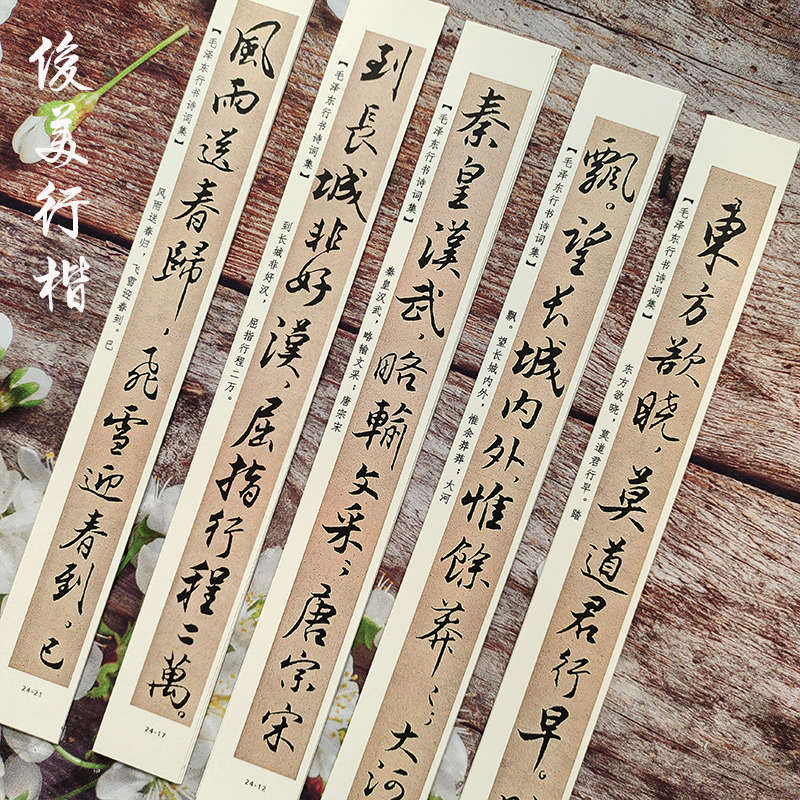 俊美行楷
【毛泽东行书诗词集】
風雨送春歸，飛雪迎春到。已
风雨送春归，飞雪迎春到。已
24-21
【毛泽东行书诗词集】
到長城非好漢，屈指行程二萬。
到长城非好汉，屈指行程二万。
24-17
【毛泽东行书诗词集】
秦皇漢武，略輸文采；唐宗宋
秦皇汉武，略输文采；唐宗宋
24-12
【毛泽东行书诗词集】
飘。望长城内外，惟餘莽〻；大河
飘。望长城内外，惟余莽莽；大河
【毛泽东行书诗词集】
東方欲晓，莫道君行早。
东方欲晓，莫道君行早。踏